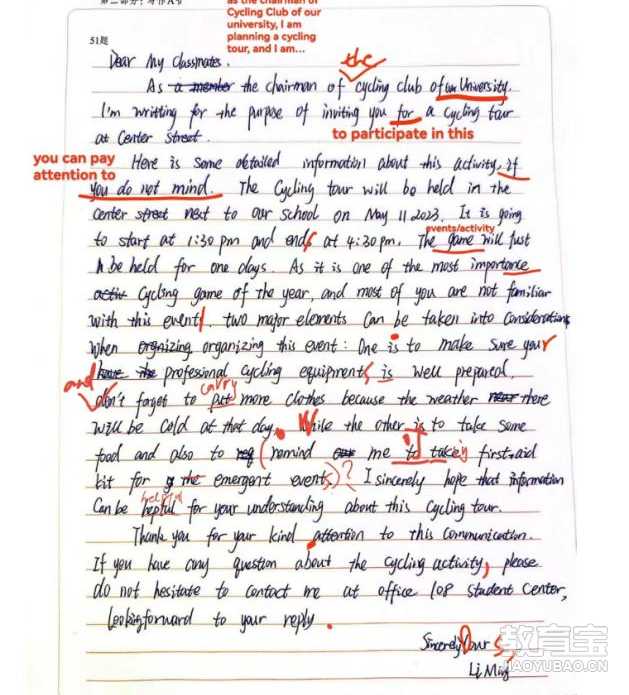 第二部分：写作A节
as the chairman of
Cycling Club of our
university, I am
planning a cycling
tour, and I am...
51题
Dear My Classmates.
the
As a member the chairman of cycling club of un University.
I'm writting for the purpose of inviting you for a cycling tour
at Center Street.
to participate in this
you can pay
attention to
Here is some detailed information about this activity, if
you do not mind. The Cycling tour will be held in the
center street next to our school on May 11 2023. It is going
events/activity
to start at 1:30 pm and ends at 4:30 pm. The game will just
be held for one days. As it is one of the most importance
activ Cycling game of the year, and most of you are not familiar
with this event. two major elements Can be taken into Considerations
When orgnizing organizing this event: One is to make sure your
have the professional Cycling equipments is well prepared.
and
carry
don't forget to put more clothes because the weather near there
will be cold at that day. While the other is to take some
food and also to (remind me to take first-aid
kit for the emergent events)? I sincerely hope that information
helpful
Can be hepful for your understanding about this Cycling tour.
Thank you for your kind attention to this communication.
If you have any question about the cycling activity, please
do not hesitate to contact me at office 108 student Center,
Looking forward to your reply.
Sincerely Yours,
Li Ming
教育宝
JIAOYUBAO.CN